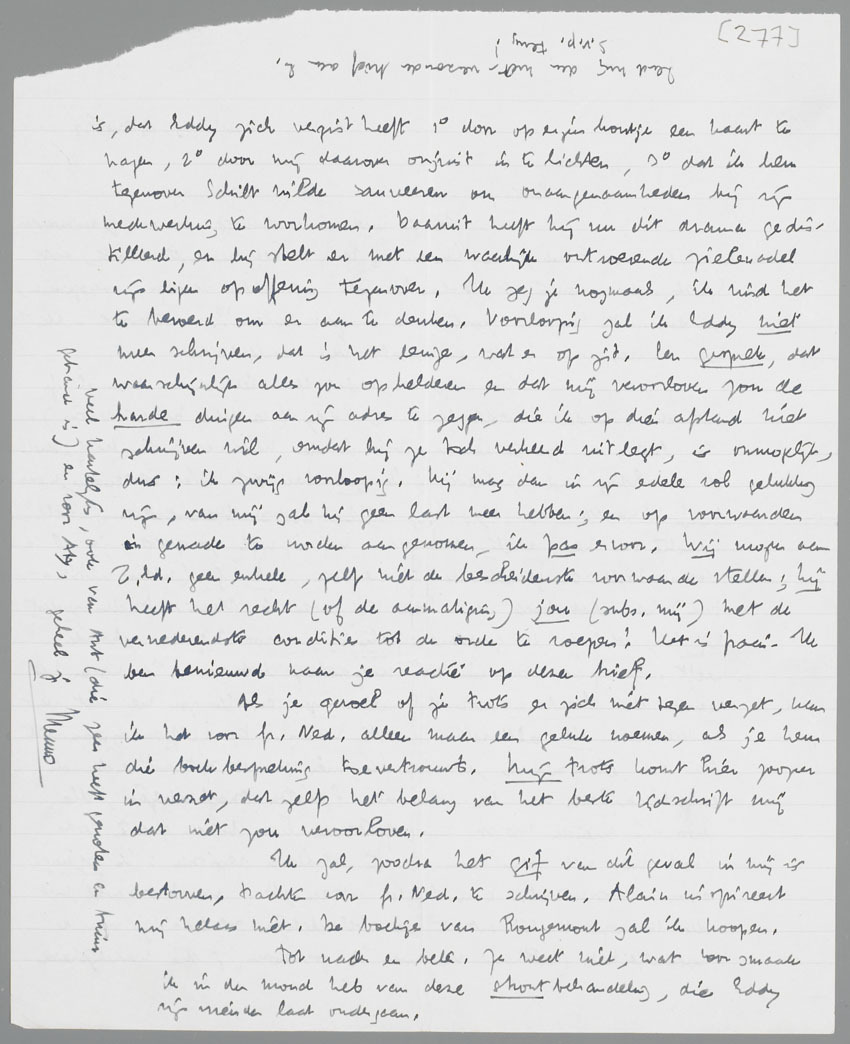 [277]
Zend mij den niet-verzonden brief aan E.
s.v.p. terug!
is, dat Eddy zich vergist heeft 1° door op eigen houtje een kaart te
2° door mij daarover onjuist in te lichten, 3° dat ik hem
tegenover Schilt wilde sauveeren om onaangenaamheden bij zijn
medewerking te voorkomen. Daaruit heeft hij nu dit drama gedis-
tilleerd, en hij stelt er met een waarlijk ontroerende zielenadel
zijn eigen opoffering tegenover. Ik zeg je nogmaals, ik vind het
te beroerd om er aan te denken. Voorloopig zal ik Eddy niet
meer schrijven, dat is het eenige, wat er op zit. Een gesprek, dat
waarschijnlijk alles zou ophelderen en dat mij veroorloven zou de
harde dingen aan zijn adres te zeggen, die ik op dien afstand niet
schrijven wil, omdat hij ze toch verkeerd uitlegt, is onmogelijk,
dus: ik zwijg voorloopig. Hij mag dan in zijn edele rol gelukkig
zijn, van mij zal hij geen last meer hebben; en op voorwaarden
in genade te worden aangenomen, ik pas ervoor. Wij mogen aan
Z.Ed. geen enkele, zelf niet de bescheidenste voorwaarde stellen; hij
heeft het recht (of de aanmatiging) jou (subs. mij) met de
vernederendste condities tot de orde te roepen! Het is fraai. Ik
ben benieuwd naar je reactie op dezen brief.
Als je gevoel of je trots er zich niet tegen verzet, kan
ik het voor Gr. Ned. alleen maar een geluk noemen, als je hem
die boekbespreking toevertrouwt. Mijn trots komt hier zoozeer
in verzet, dat zelfs het belang van het beste tijdschrift mij
dat niet zou veroorloven.
Ik zal, zoodra het gif van dit geval in mij is
bestorven, trachten voor Gr. Ned. te schrijven. Alain inspireert
mij helaas niet. Het boekje van Rougemont zal ik koopen.
Tot nader en beter. Je weet niet, wat voor smaak
ik in den mond heb van deze stront behandeling, die Eddy
zijn vrienden laat ondergaan.
veel hartelijks, ook van Ant (die zeer heeft genoten en
gebruind is) en voor Atty, geheel je
Menno